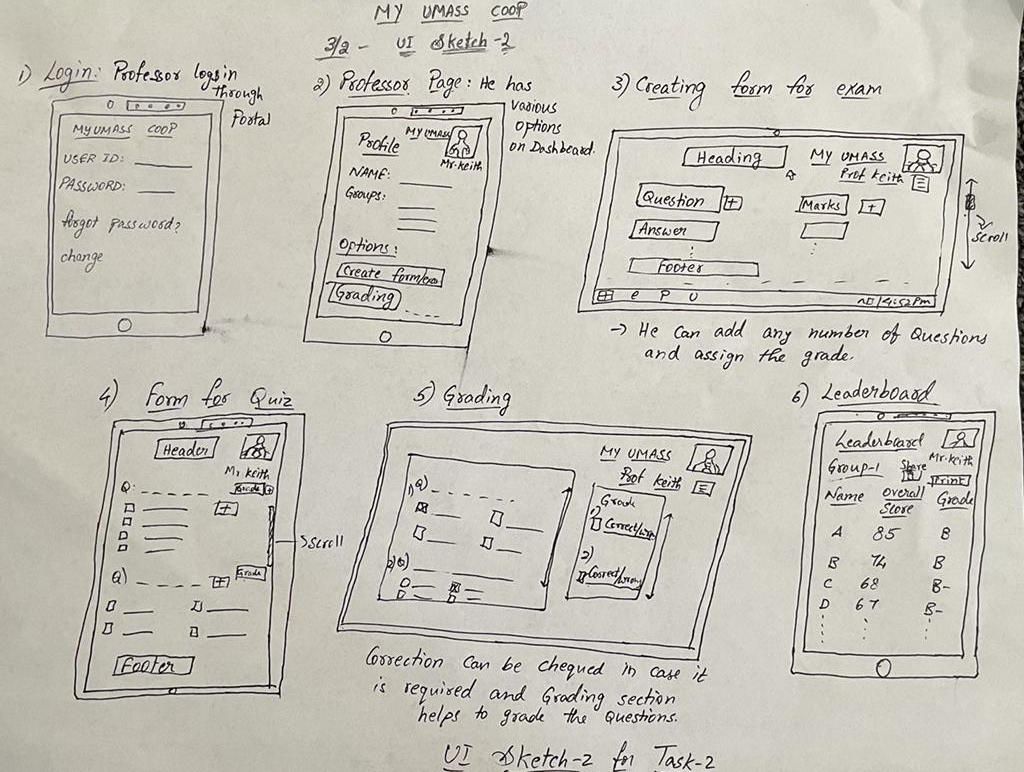 MY UMASS COOP
3/2 - UI Sketch-2
1) Login: Professor logsin
through
Portal
MYUMASS COOP
USER ID:
PASSWORD:
forgot password?
change
2) Professor Page: He has
various
options
on Dashboard.
Profile
MY UMASS
Mr. Keith
NAME:
Groups:
Options:
Create form/exam
Grading
3) Creating form for exam
Heading
MY UMASS
Prof Keith
Question +
Marks +
Answer
Footer
Scroll
e P U
4:52 Pm
→ He can add any number of Questions
and assign the grade.
4) Form for Quiz
Header
Mr Keith
Q:
Grade +
+
Scroll
Q)
+
Grade
Footer
5) Grading
MY UMASS
Prof Keith
1) Q)
2) Q)
Grade
1)
Correct/wrong
2)
Correct/wrong
Correction can be chequed in case it
is required and Grading section
helps to grade the Questions.
6) Leaderboard
Leaderboard
Mr. Keith
Group-1
Share
Print
Name Overall Score Grade
A 85 B
B 74 B
C 68 B-
D 67 B-
UI Sketch-2 for Task-2